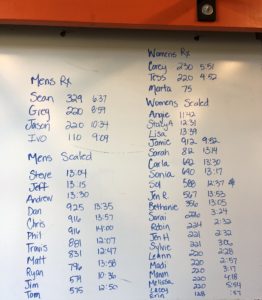 Mens Rx
Sean 329 6:37
Greg 220 8:59
Jason 220 10:34
Ivo 110 9:09
Mens Scaled
Steve 13:04
Jeff 13:15
Andrew 13:30
Dan 925 13:35
Chris 916 13:57
Phil 916 14:00
Travis 881 12:07
Matt 831 12:47
Ryan 796 13:58
Jim 579 10:36
Tom 575 12:50
Womens Rx
Corey 230 5:51
Tess 220 9:52
Marta 75
Womens Scaled
Angie 11:42
Stacy A 12:31
Lisa 13:59
Jamie 912 9:52
Sarah 82 13:14
Carla 692 13:30
Sonia 690 13:17
Sol 588 12:37
Jen R. 567 13:53
Bethanie 356 13:05
Sarai 226 3:24
Robin 224 2:32
Jen H 221 2:32
Sylvie 221 3:06
LeAnn 220 2:28
Madi 220 2:57
Mann 220 3:17
Melissa 220 4:18
Lacey 218 5:54
Erin 128